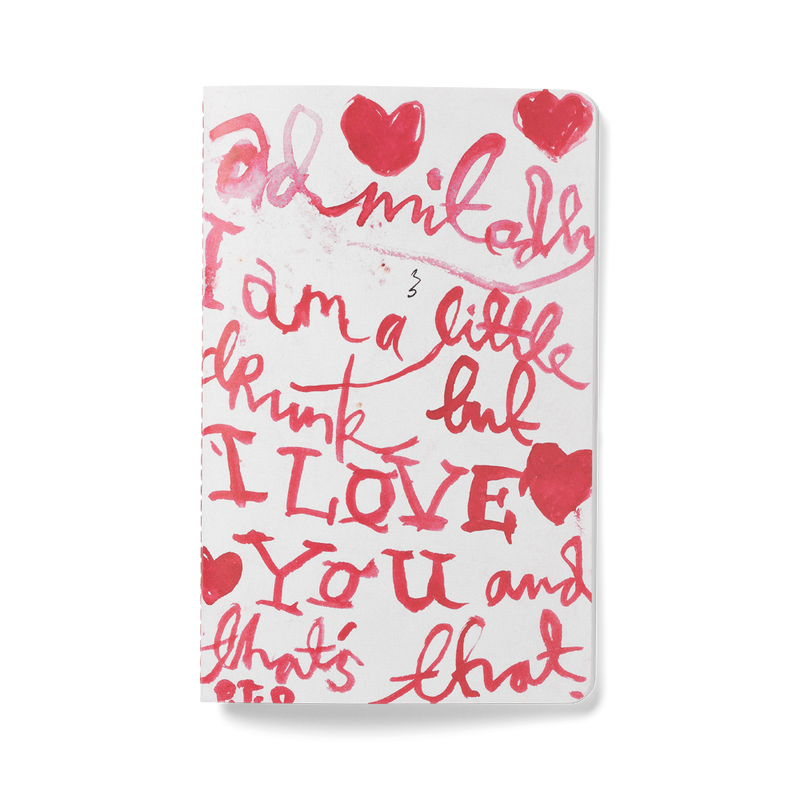 admitedly
I am a little
drunk but
I LOVE
YOU and
that's that.
P.T.O